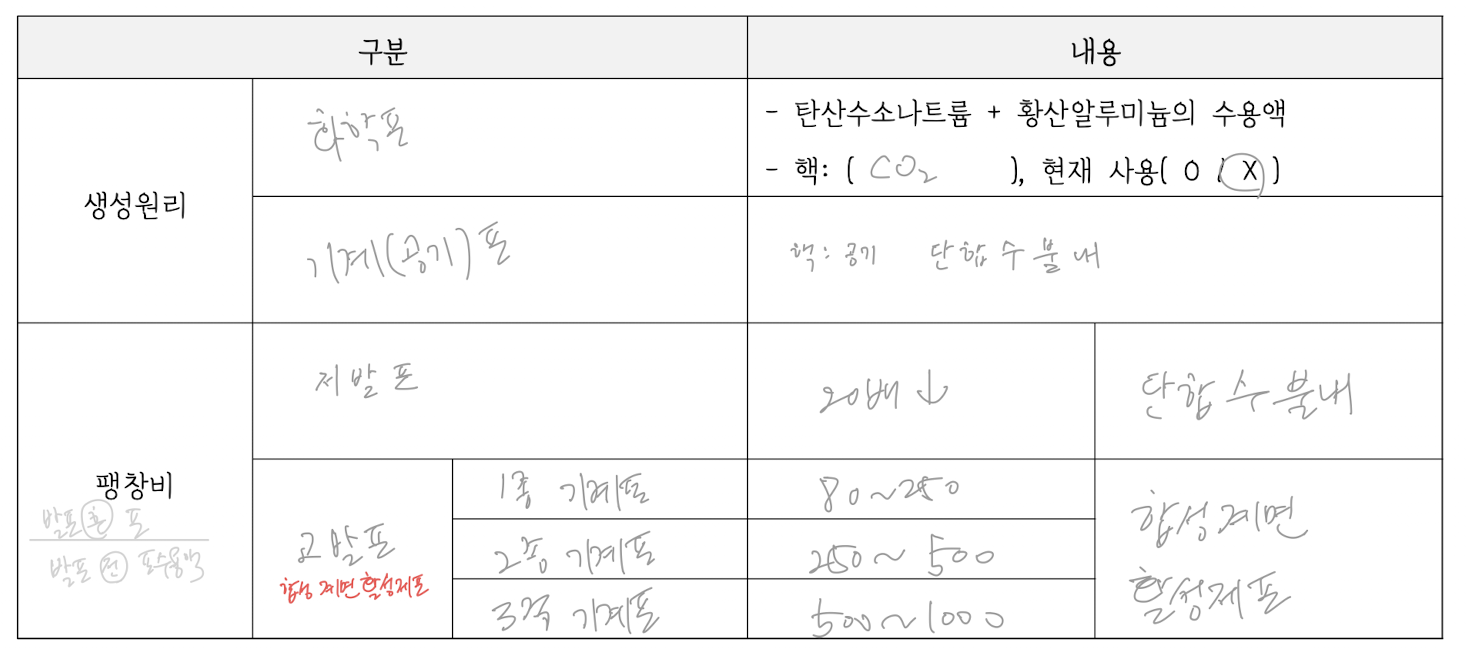 구분 내용
생성원리
화학포
- 탄산수소나트륨 + 황산알루미늄의 수용액
- 핵: ( CO₂ ), 현재 사용( O / X )
기계(공기)포
핵: 공기 단합수불내
팽창비
발포 후 포
발포 전 포수용액
저발포
20배↓
단합수불내
고발포
합성계면활성제포
1종 기계포
80~250
2종 기계포
250~500
3종 기계포
500~1000
합성계면
활성제포